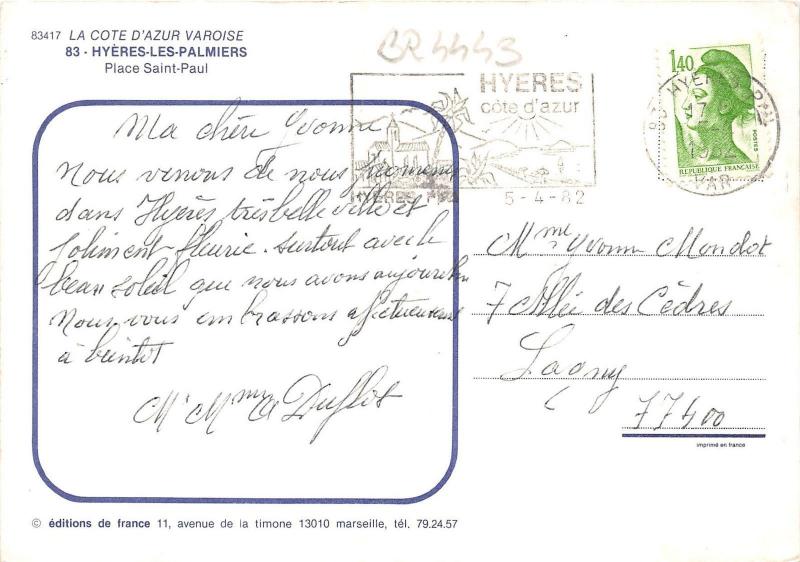 83417 LA COTE D'AZUR VAROISE
83 - HYÈRES-LES-PALMIERS
Place Saint-Paul
BR4443
HYERES
côte d'azur
5-4-82
1,40
POSTES
REPUBLIQUE FRANÇAISE
VAR
Ma chère Yvonne
Nous venons de nous promener
dans Hyères très belle ville et
joliment fleurie. surtout avec le
beau soleil que nous avons aujourd'hui
Nous vous embrassons affectueusement
à bientot
Mr Mme Duflos
Mme Yvonne Mondot
7 Allée des Cèdres
Lagny
77400
imprimé en france
© éditions de france 11, avenue de la timone 13010 marseille, tél. 79.24.57